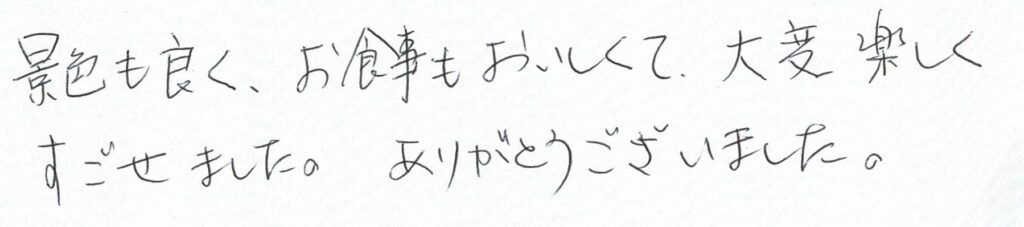 景色も良く、お食事もおいしくて、大変楽しく
すごせました。 ありがとうございました。